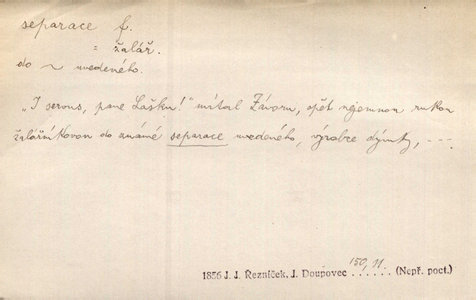 separace f.
= žalář.
do ~ uvedeného.
„I servus, pane Lášku!" vítal Závoru, opět nejemnou rukou
žalářníkovou do známé separace uvedeného, výrobce dýmky, ---
1856 J. J. Řezníček, J. Doupovec 150, 11. (Nepř. poct.)